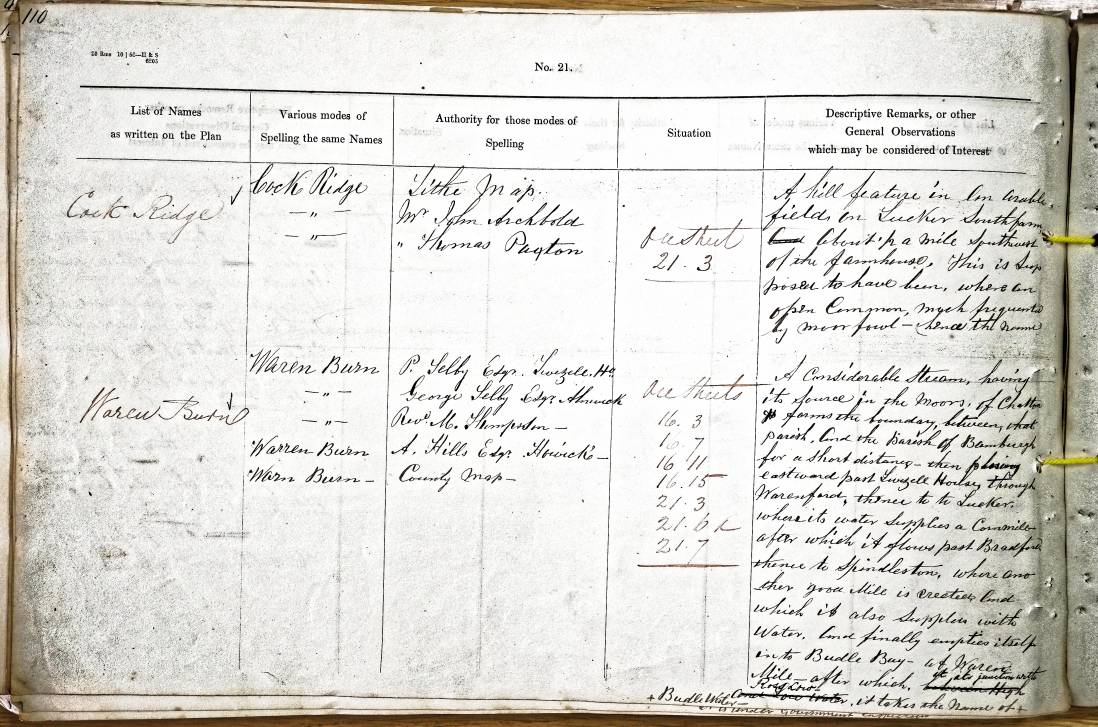 110
No. 21.
List of Names
as written on the Plan
Various modes of
Spelling the same Names
Authority for those modes of
Spelling
Situation
Descriptive Remarks, or other
General Observations
which may be considered of Interest
Cock Ridge
Cock Ridge
— " —
— " —
Tithe Map.
Mr John Archbold
" Thomas Paxton
See Sheet
21. 3
A hill feature in an arable
field, on Lucker Southfarm
and about ½ a mile Southwest
of the farmhouse. This is sup
posed to have been, when an
open Common, much frequented
by moorfowl — hence the name
Waren Burn
Waren Burn
— " —
— " —
Warren Burn
Warn Burn —
P. Selby Esqr. Twizell Ho.
George Selby Esqr. Alnwick
Revd. M. Thompson —
A. Hills Esqr. Howick —
County Map —
See Sheets
16. 3
16. 7
16. 11
16. 15
21. 3
21. 6 &
21. 7
A Considerable Stream, having
its source in the Moors, of Chatton
& forms the boundary, between, that
parish, and the Parish of Bamburgh
for a short distance — then
eastward past Twizell House, through
Warenford, thence to to Lucker.
where its water supplies a Cornmill
after which it flows past Bradford
thence to Spindleston, where ano
ther good Mile is erected and
which it also Supplies with
Water. And finally empties itself
into Budle Bay — at Waren
Mile — after which, at its junction with
between High
and Low Water, it takes the name of +
+ Budle Water